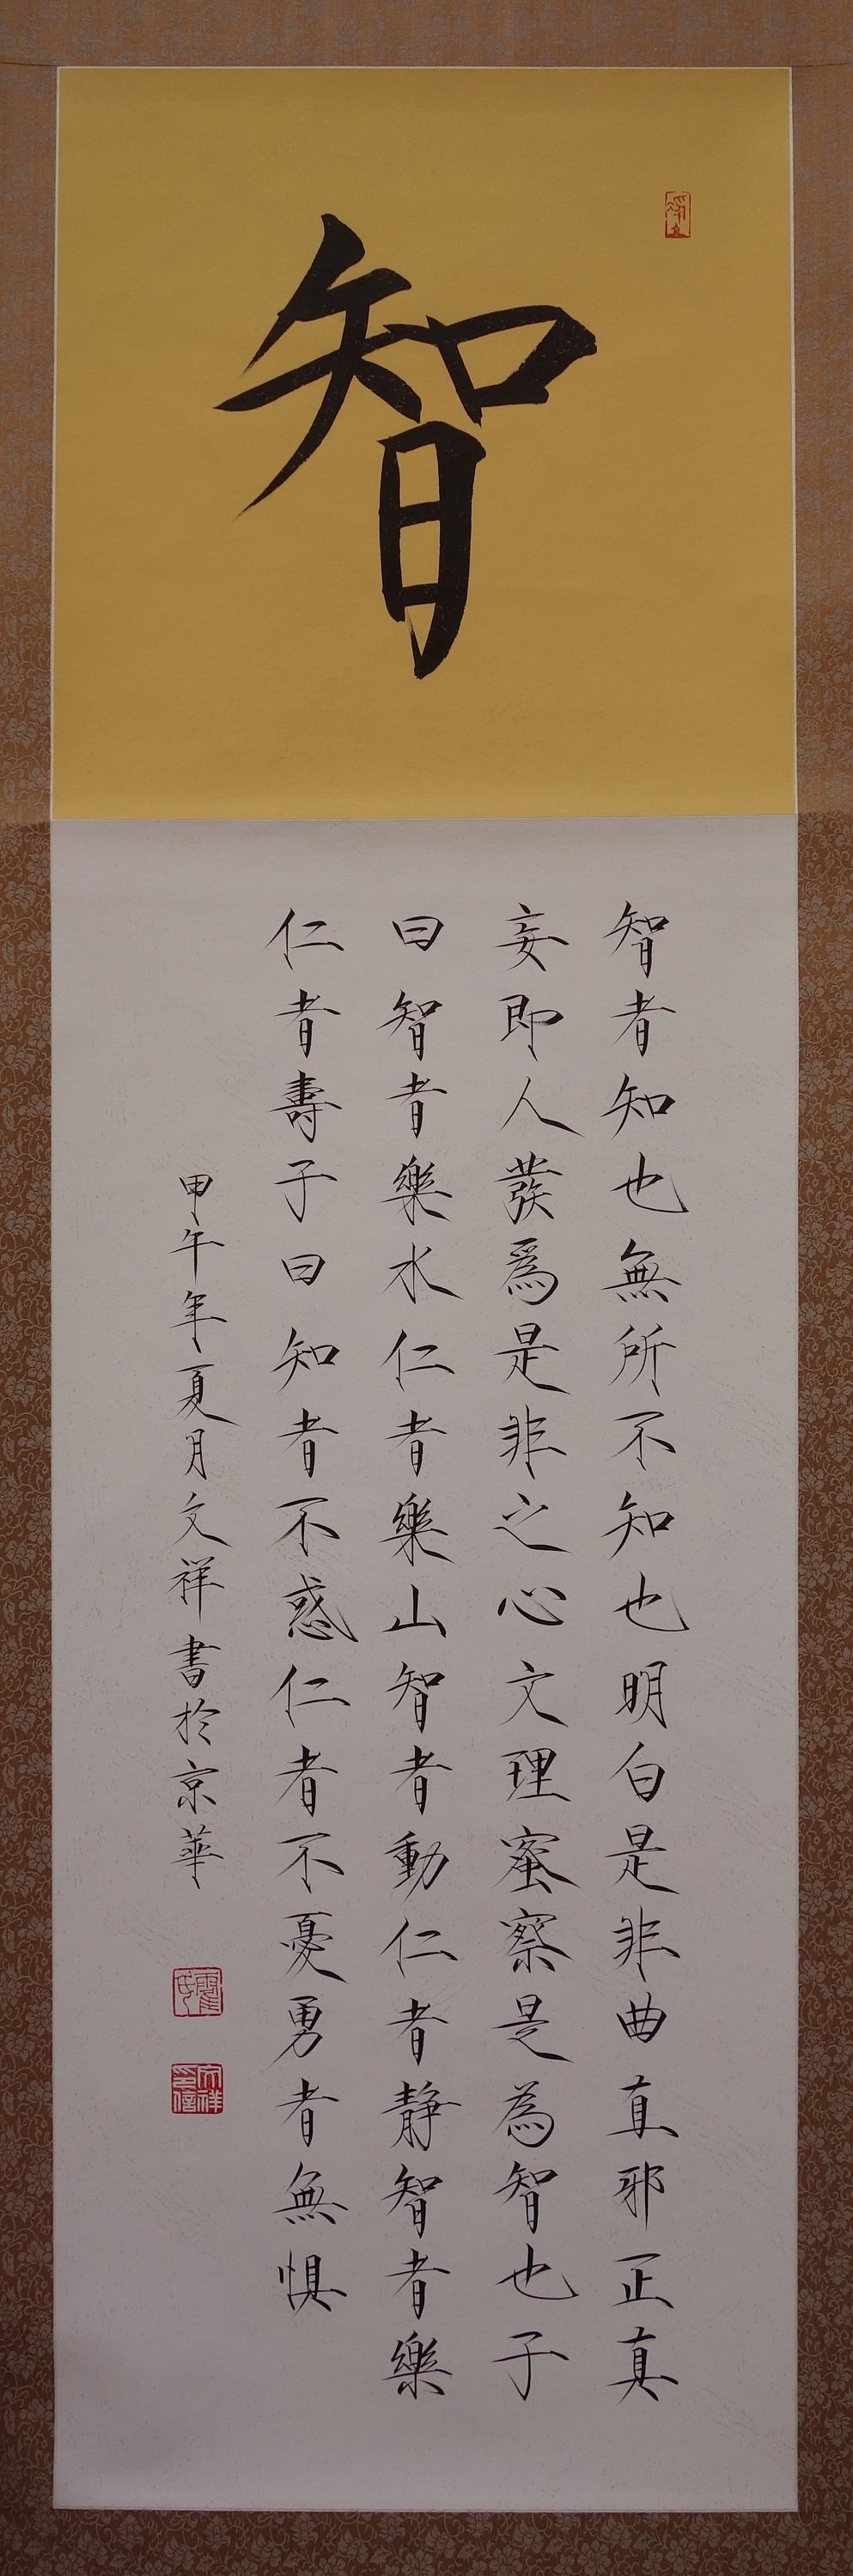 智
智者知也無所不知也明白是非曲直邪正真
妄即人發爲是非之心文理蜜察是為智也子
曰智者樂水仁者樂山智者動仁者靜智者樂
仁者壽子曰知者不惑仁者不憂勇者無惧
甲午年夏月文祥書於京華
文祥印信